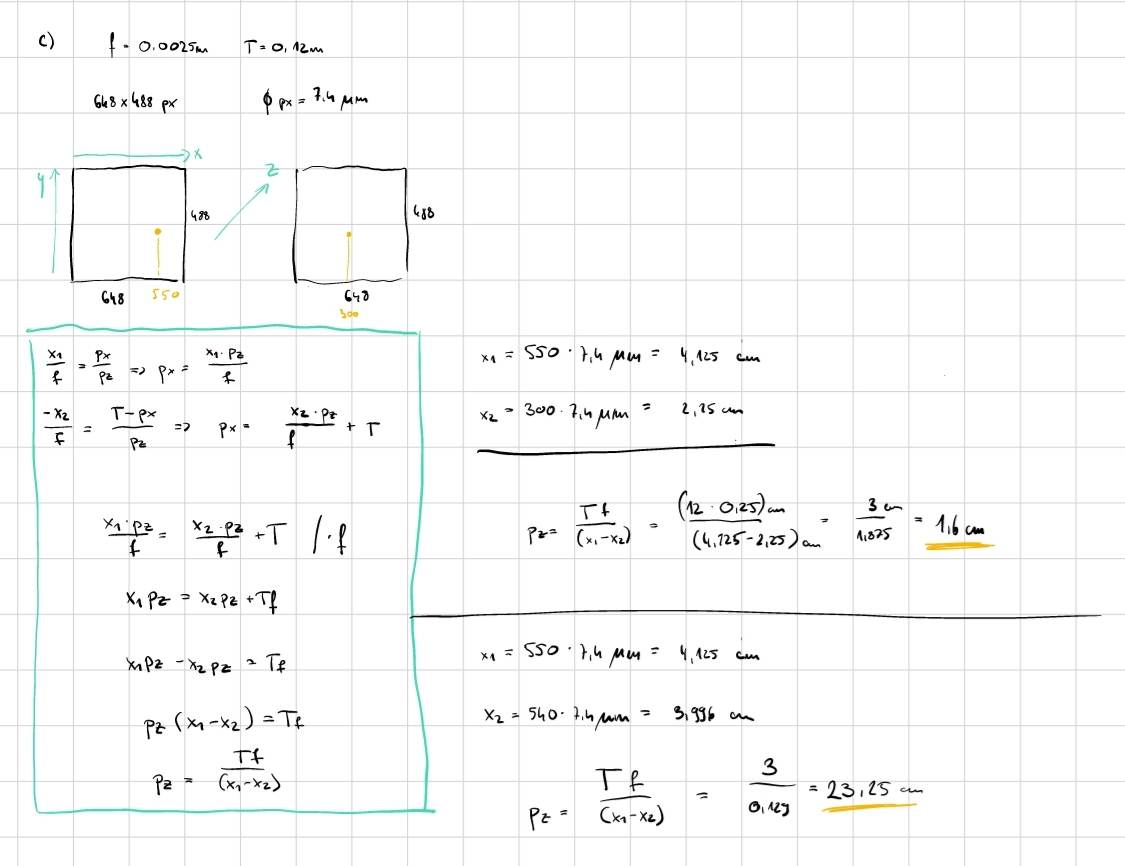 c) f = 0.0025m T = 0,12m
648 x 488 px ϕ px = 7.4 μm
x
z
y
488
488
648 550
648
300
x1/f = px/pz => px = x1·pz/f
-x2/f = T-px/pz => px = x2·pz/f + T
x1·pz/f = x2·pz/f + T /·f
x1 pz = x2 pz + Tf
x1 pz - x2 pz = Tf
pz (x1-x2) = Tf
pz = Tf/(x1-x2)
x1 = 550 · 7,4 μm = 4,125 cm
x2 = 300 · 7,4 μm = 2,25 cm
pz = Tf/(x1-x2) = (12 · 0,25)cm/(4,125-2,25)cm = 3 cm/1,875 = 1,6 cm
x1 = 550 · 7,4 μm = 4,125 cm
x2 = 540 · 7,4 μm = 3,996 cm
pz = Tf/(x1-x2) = 3/0,129 = 23,25 cm